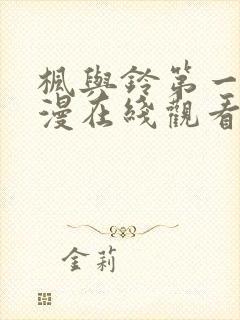 楓與鈴第一
漫在綫觀看
金莉